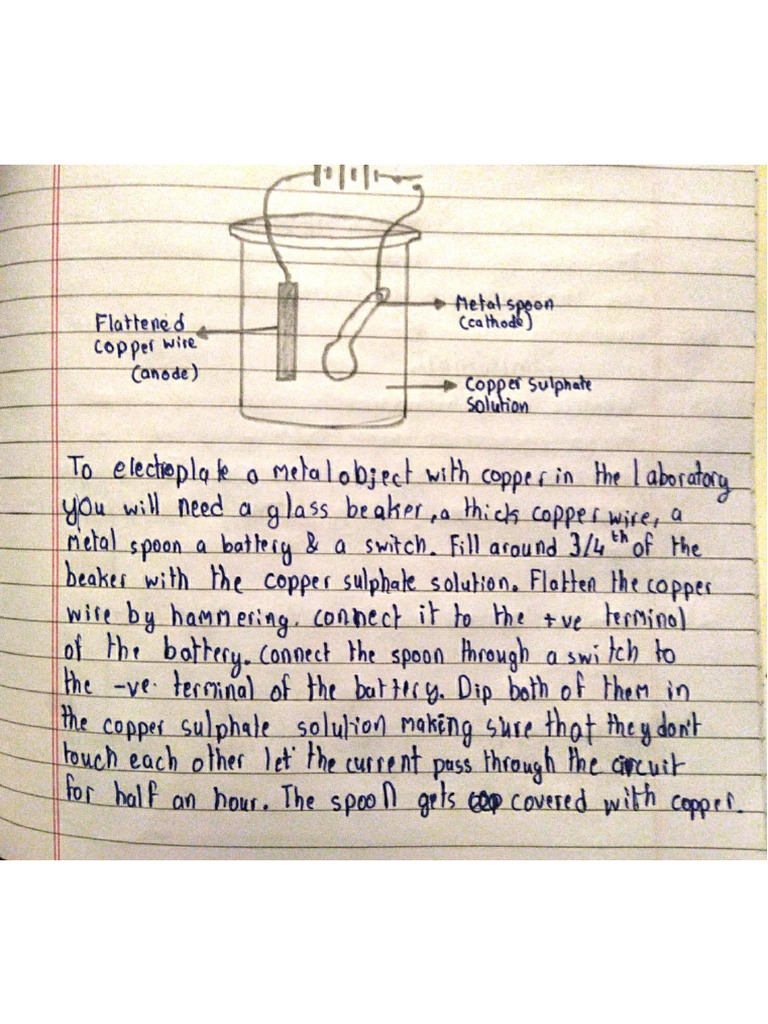 Metal spoon
(cathode)
Flattened
copper wire
(anode)
Copper sulphate
solution
To electroplate a metal object with copper in the laboratory
you will need a glass beaker, a thick copper wire, a
metal spoon a battery & a switch. Fill around 3/4th of the
beaker with the copper sulphate solution. Flatten the copper
wire by hammering. connect it to the +ve terminal
of the battery. Connect the spoon through a switch to
the -ve terminal of the battery. Dip both of them in
the copper sulphate solution making sure that they don't
touch each other let the current pass through the circuit
for half an hour. The spoon gets covered with copper.